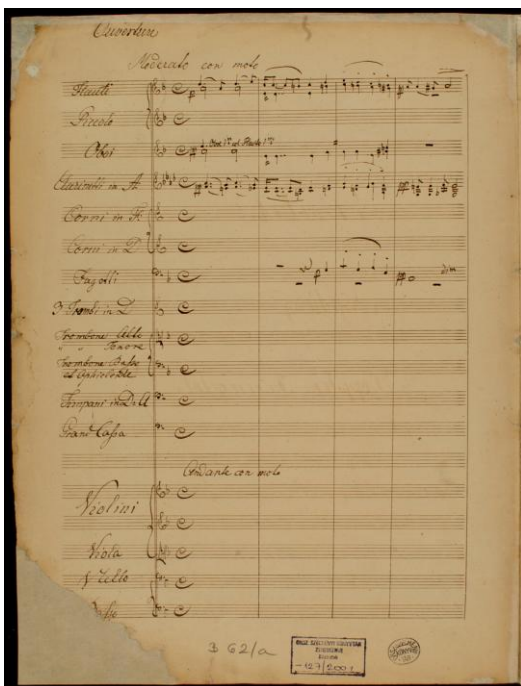 Ouverture
Moderato con moto
Flauti
Piccolo
Oboi
Oboe 1mo col Flauto 1mo
Clarinetti in A
Corni in F
Corni in D
Fagotti
dim
3 Trombi in D
Trombone Alto
Tenore
Trombone Basso
Timpani in D. A
Gran Cassa
Andante con moto
Violini
Viola
Cello
3 62/a
ORSZ. SZÉCHÉNYI KÖNYVTÁR
127/2001